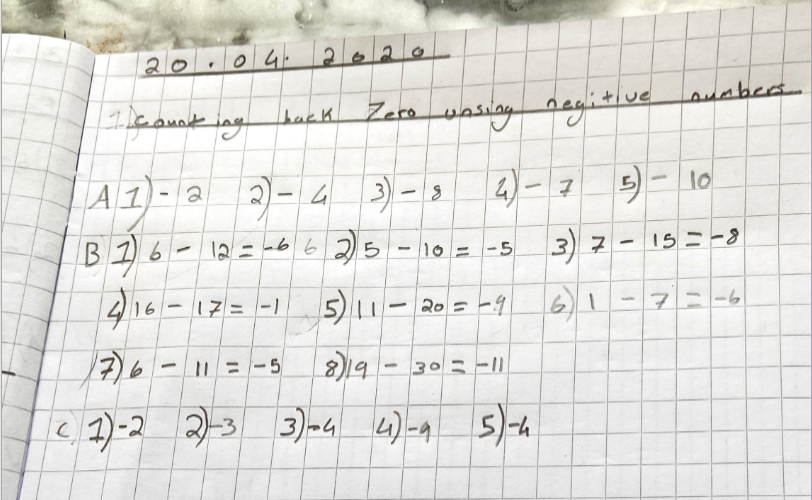 20.04.2020
1) Counting back Zero unsing negitive numbers
A 1) - 2 2) - 4 3) - 8 4) - 7 5) - 10
B 1) 6 - 12 = -6 6 2) 5 - 10 = -5 3) 7 - 15 = -8
4) 16 - 17 = -1 5) 11 - 20 = -9 6) 1 - 7 = -6
7) 6 - 11 = -5 8) 19 - 30 = -11
C 1) -2 2) -3 3) -4 4) -9 5) -4